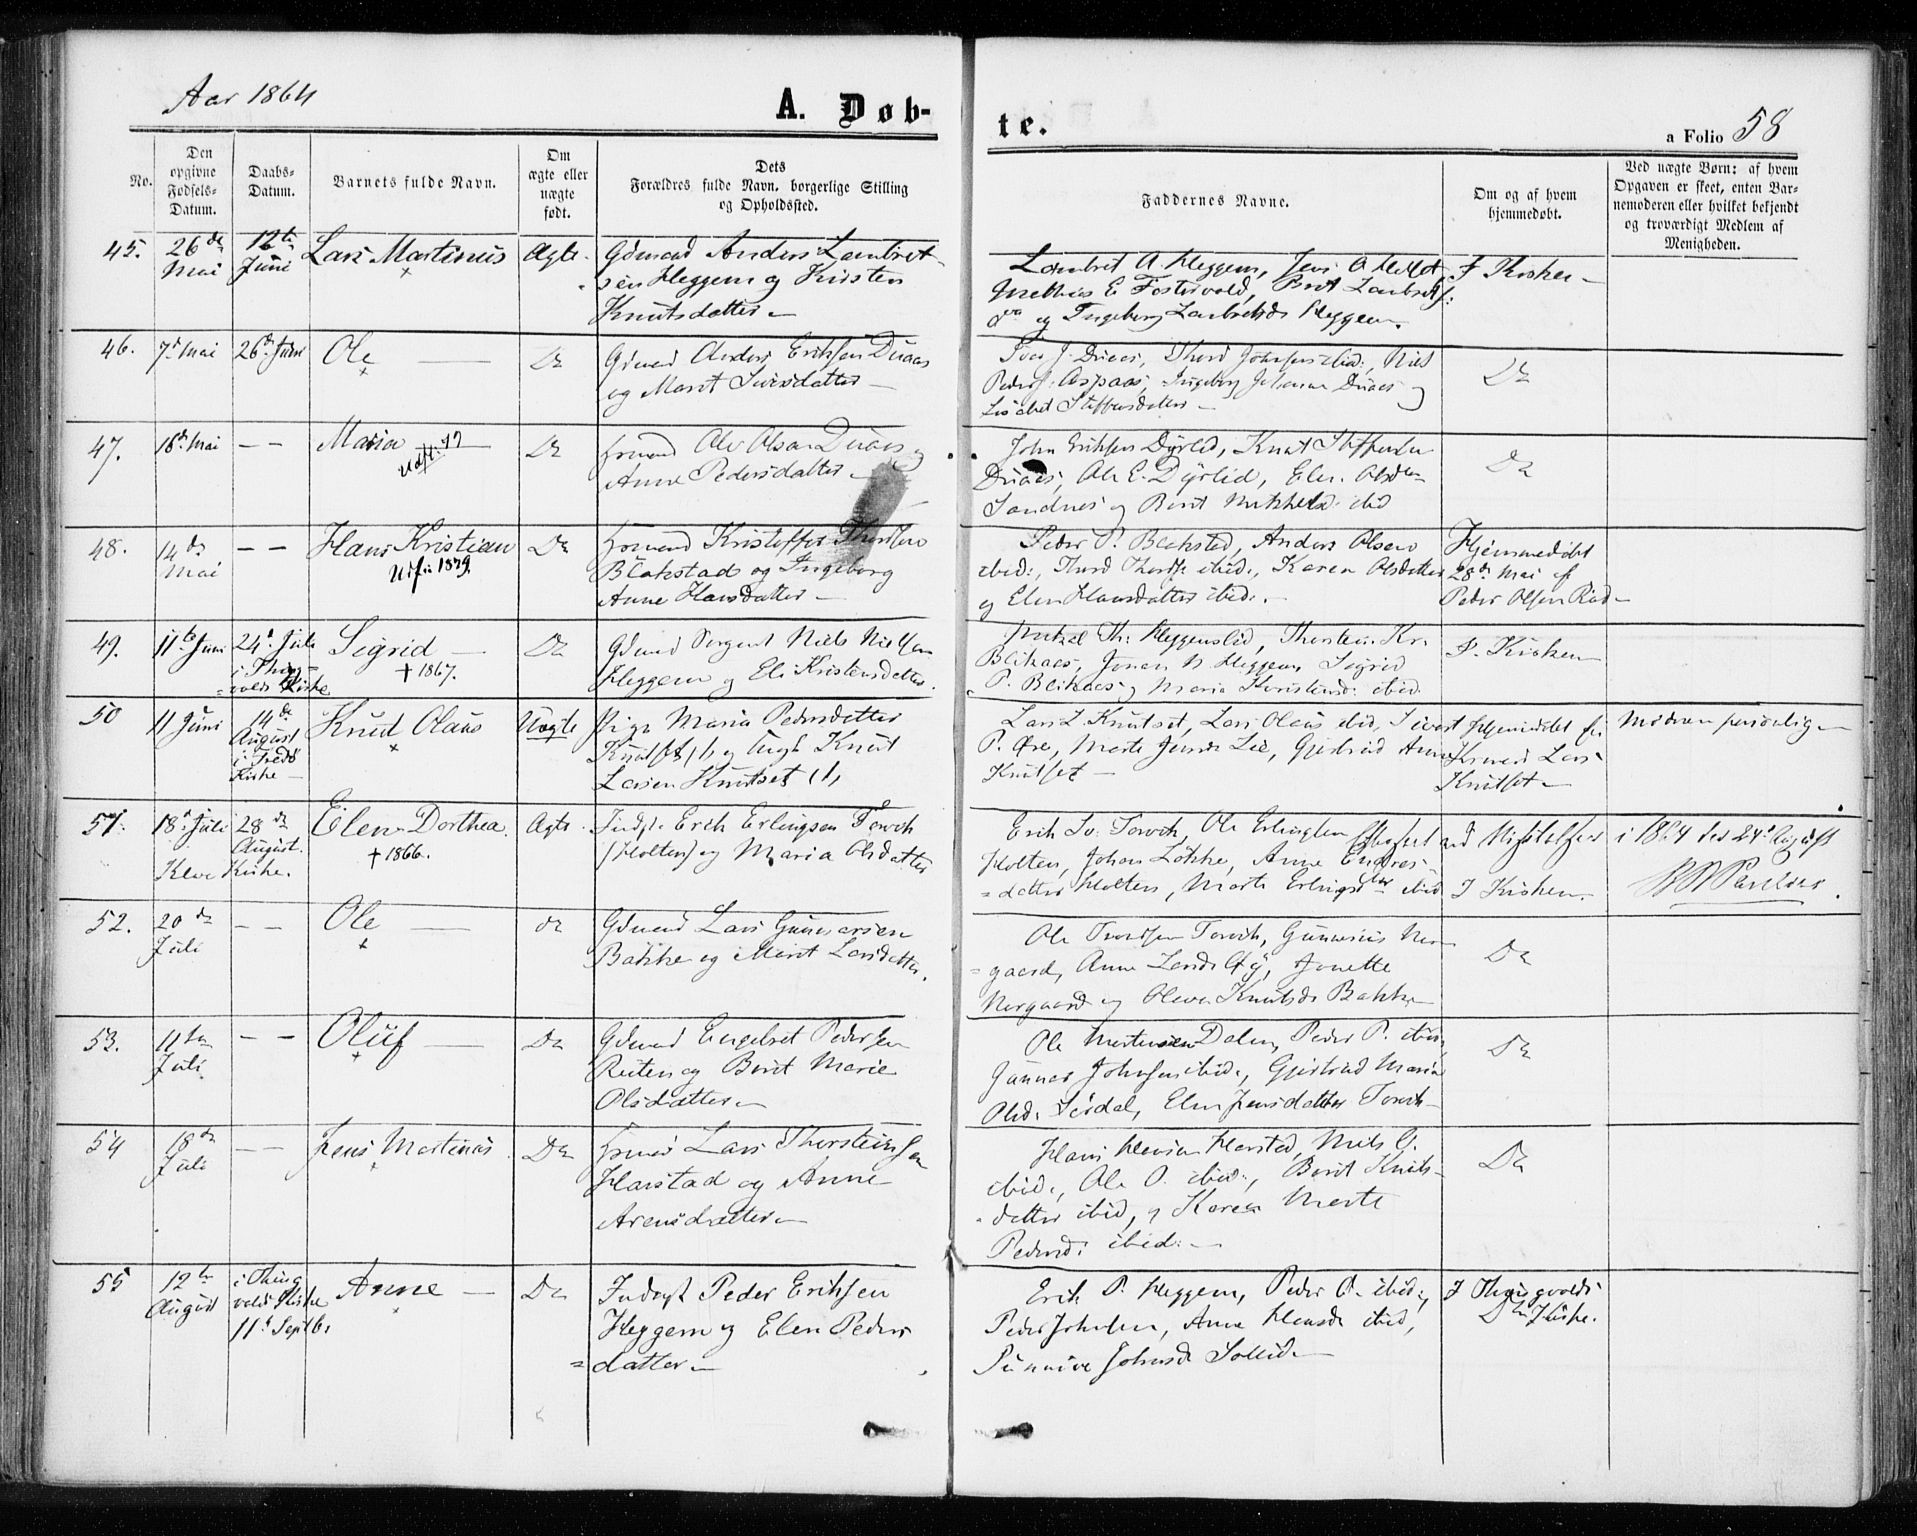 Aar 1864
A. Døb-
te.
a Folio 58
No.
Den
opgivne
Fødsels-
Datum.
Daabs-
Datum.
Barnets fulde Navn.
Om
ægte eller
uægte
født.
Dets
Forældres fulde Navn, borgerlige Stilling
og Opholdssted.
Faddernes Navne.
Om og af hvem
hjemmedøbt.
Ved uægte Børn: af hvem
Opgaven er skeet, enten Bar-
nemoderen eller hvilket bekjendt
og troværdigt Medlem af
Menigheden.
45. 26de Mai 12te Juni Lars Martinus Ægte Gdmand Anders Lambret-
sen Heggem og Kirsten
Knutsdatter
Lambret A. Heggem, Jens O.
Mathias E. Fostervold, Brit Lambretsd.
og Ingeborg Lambretsd. Heggem.
I Kirken
46. 7d Mai 26d Juni Ole Do Gdmand Anders Eriksen Duaas
og Marit Iversdatter
Iver J. Duaas, Thord Johnsen ibid:, Nils
Peders: Aspaas, Ingeborg Johanne Duaas og
Lisabet Steffensdatter
Do
47. 16de Mai - - Maria Udfl. 77 Do Ole Olsen Duaas og
Anne Pedersdatter
John Eriksen Dyrlid, Knut Steffensen
Duaas, Ole E. Dyrlid, Elen Olsdr
Sandnes og Berit ibid
Do
48. 14de Mai - - Hans Kristian Udfl. 1879. Do Kristoffer Thordsen
Blakstad og Ingeborg
Anne Hansdatter
Peder P. Blakstad, Anders Olsen
ibid:, Thord Thords. ibid:, Karen Olsdatter
og Elen Hansdatter ibid:.
Hjemmedøbt
28de Mai af
Peder Olsen
49. 11te Juni 24d Juli
i Thing-
volds Kirke
Sigrid † 1867. Do Gdmand Sergent Niels Nielsen
Heggem og Eli Kristensdatter.
Mikal Th: Heggemslid, Thorsten Kr.
Blikaas, Jonas N. Heggem, Sigrid
P. Blikaas og Maria Kristensd: ibid.
I Kirken
50 11 Juni 14de August
i Fredø
Kirke
Knud Olaus Uægte Pige Maria Pedersdatter
Knutset (1) og Ungk. Knut
Larsen Knutset (1)
Lars L. Knutset, Lars Olaus ibid, Sivert
P. Øre, Marte Jensd. Lie, Gjertrud Anne
Knutset
Hjemmedøbt
Lars
Knutset
Moderen personlig
51. 18d Juli 28de August.
Kvernes Kirke.
Elen Dorthea. † 1866. Ægte. Inds: Erik Erlingsen Torvik
(Holten) og Maria Olsdatter
Erik Torvik, Ole Erlingsen
Holten, Johan Løkke, Anne Endres-
datter Holten, Marte Erlingsdtr ibid
I Kirken
i 1864 den 24d August
52. 20de Juli - - Ole do Gdmand Lars Gunnarsen
Bakke og Marit Larsdatter.
Ole Torvik, Gunnerius Nor-
gaard, Anne Larsd. Jonette
Norgaard og Olava Knutsd. Bakke
Do
53. 11te Juli. - - Oluf Do Gdmand Engebret Pedersen
Reiten og Berit Marie
Olsdatter
Ole Mortensen Dalen, Peder P. ibid,
Gunnar Johnsen ibid:, Gjertrud Maria
Olsd. Sørdal, Elen Jensdatter Torvik
Do
54 18de Juli - - Jens Martinus Do Lars Thorsteinsen
Harstad og Anne
Arensdatter
Hans Hansen Harstad, Niels O.
ibid:, Ole O. ibid:, Berit Knuts-
datter ibid, og Karen Marte
Pedersd: ibid:
Do
55 12te August i Thing
volds Kirke
11d Septbr
Anne Do Inds: Peder Eriksen
Heggem og Elen Peders
datter
Erik P. Heggem, Peder O. ibid:,
Peder Johnsen, Anne Hansd. ibid,
Johnsd. Sollid
I Thingvolds
Kirke.